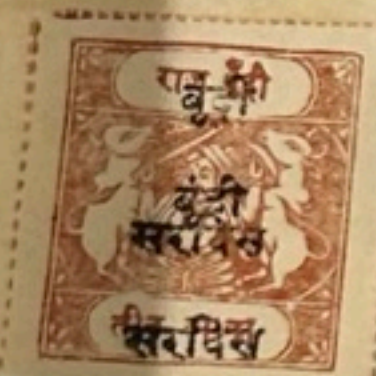 राज बूंदी
बूंदी
बूंदी
सरविस
सरविस